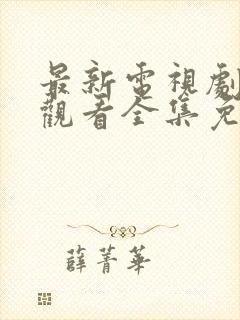 最新電視劇
觀看全集免
薛菁華